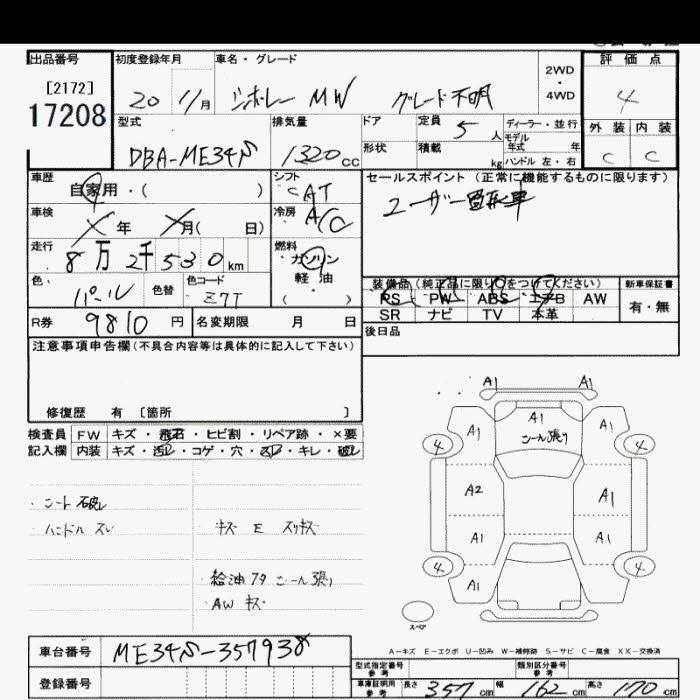 出品番号 初度登録年月 車名・グレード 評価点
[2172] 2WD・4WD
17208 20 11月 シボレー MW グレード不明 4
型式 排気量 ドア 定員 5人 ディーラー・並行 外装 内装
DBA-ME34S 1320cc 形状 積載 kg モデル年式 年 ハンドル 左・右 C C
車歴 自家用・( ) シフト CAT セールスポイント(正常に機能するものに限ります)
車検 X年 X月( 日) 冷房 A/C ユーザー買取車
走行 8万2千530km 燃料 ガソリン
軽油
( )
色 パール 色替 色コード Z7T 装備品(純正品に限り○をつけてください) 新車保証書
PS PW ABS エアB AW 有・無
SR ナビ TV 本革
R券 9810円 名変期限 月 日 後日品
注意事項申告欄(不具合内容等は具体的に記入して下さい)
修復歴 有 [箇所 ]
検査員 FW キズ・飛石・ヒビ割・リペア跡・×要
記入欄 内装 キズ・汚レ・コゲ・穴・スレ・キレ・破レ
・シート破レ
・ハンドルスレ キズ E スリキズ
給油フタ シール張り
AW キズ
A1 A1
A1 A1 A1
シール張り
4 4
A2 A1
A1 A1
4 4
A1
スペア
A-キズ E-エクボ U-凹み W-補修跡 S-サビ C-腐食 XX-交換済
車台番号 ME34S-357938
登録番号
型式指定番号 参考 類別区分番号 参考
車庫証明用 参考 長さ 357cm 幅 162cm 高さ 170cm